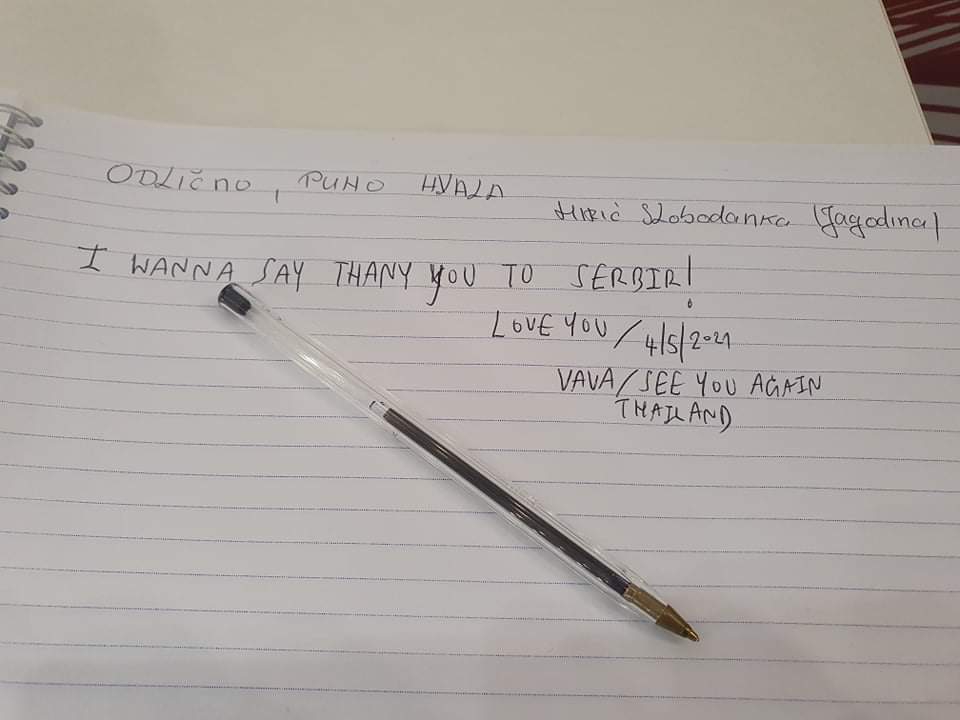 ODLIČNO, PUNO HVALA
Slobodanka (Jagodina)
I WANNA SAY THANY YOU TO SERBIR!
LOVE YOU / 4/5/2021
VAVA / SEE YOU AGAIN
THAILAND